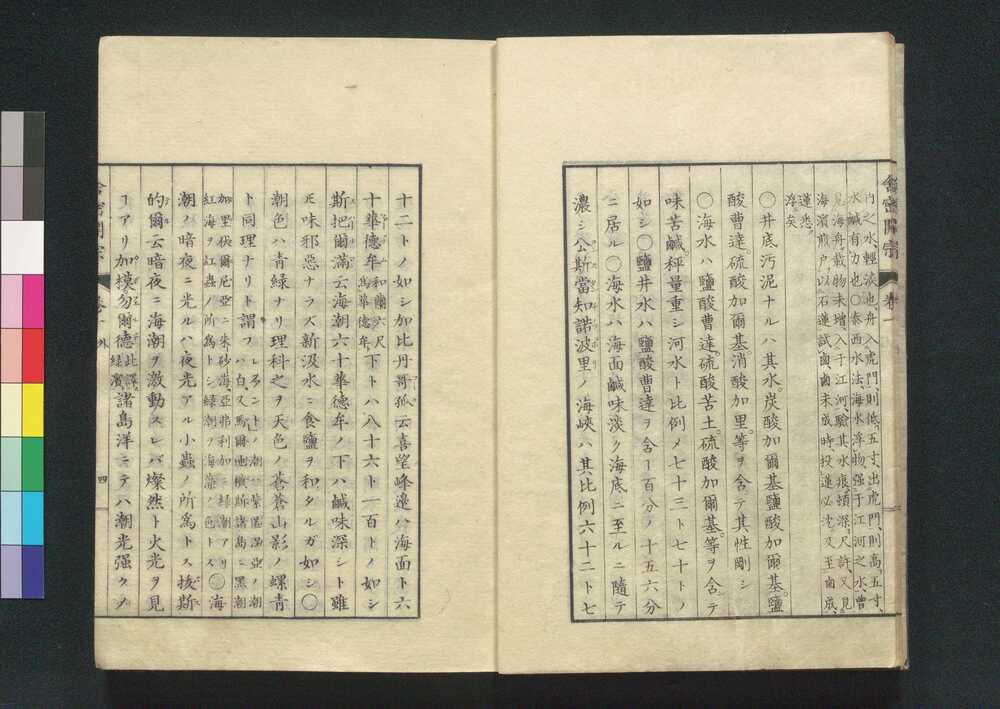 内之水、輕淡也舟入虎門、則低、五寸、出虎門、則高、五寸、
水鹹有力也〇泰西水法、海水浮物强于江河之水、曹
見海舟、載物未增、入于江河、驗其水痕、頓深、尺許、又見
海濱煎戸、以石蓮試鹵、鹵未成時、投蓮必沈、又至鹵成、
蓮悉
浮矣
〇井底汚泥ナルハ其水。炭酸加爾基鹽酸加爾基。鹽
酸曹達。硫酸加爾基。消酸加里。等ヲ含テ其性剛シ
〇海水ハ鹽酸曹達。硫酸苦土。硫酸加爾基。等ヲ含テ
味苦鹹。秤量重シ河水ト比例メ七十三ト七十トノ
如シ〇鹽井水ハ鹽酸曹達ヲ含ー百分ノ十五六分
ニ居ル〇海水ハ海面鹹味淡ク海底ニ至ルニ隨テ
濃シ公斯當知諾波里ノ海峽ハ其比例六十二ト七
舍密開宗 卷一
十二トノ如シ加比丹哥狐云喜望峰邊ハ海面ト六
十華德牟和蘭六尺爲華德牟下トハ八十六ト一百トノ如シ
斯把爾滿云海潮六十華德牟ノ下ハ鹹味深シト雖
モ味邪惡ナラズ新汲水ニ食鹽ヲ和タルガ如シ〇
潮色ハ青綠ナリ理科之ヲ天色ノ蒼蒼山影ノ螺青
ト同理ナリト謂フ
加里伏爾尼亞ニ朱砂海、亞弗利加ニ綠潮アリ〇海
紅海ヲ紅蟲ノ所爲トシ綠潮ヲ海藻ノ色トス
潮ノ暗夜ニ光ルハ夜光アル小蟲ノ所爲トス拔斯
的爾云暗夜ニ海潮ヲ激動スレバ燦然ト火光ヲ見
ーアリ加摸勿爾德此譯綠濱諸島洋ニテハ潮光强クメ
舍密開宗 卷一 外 四